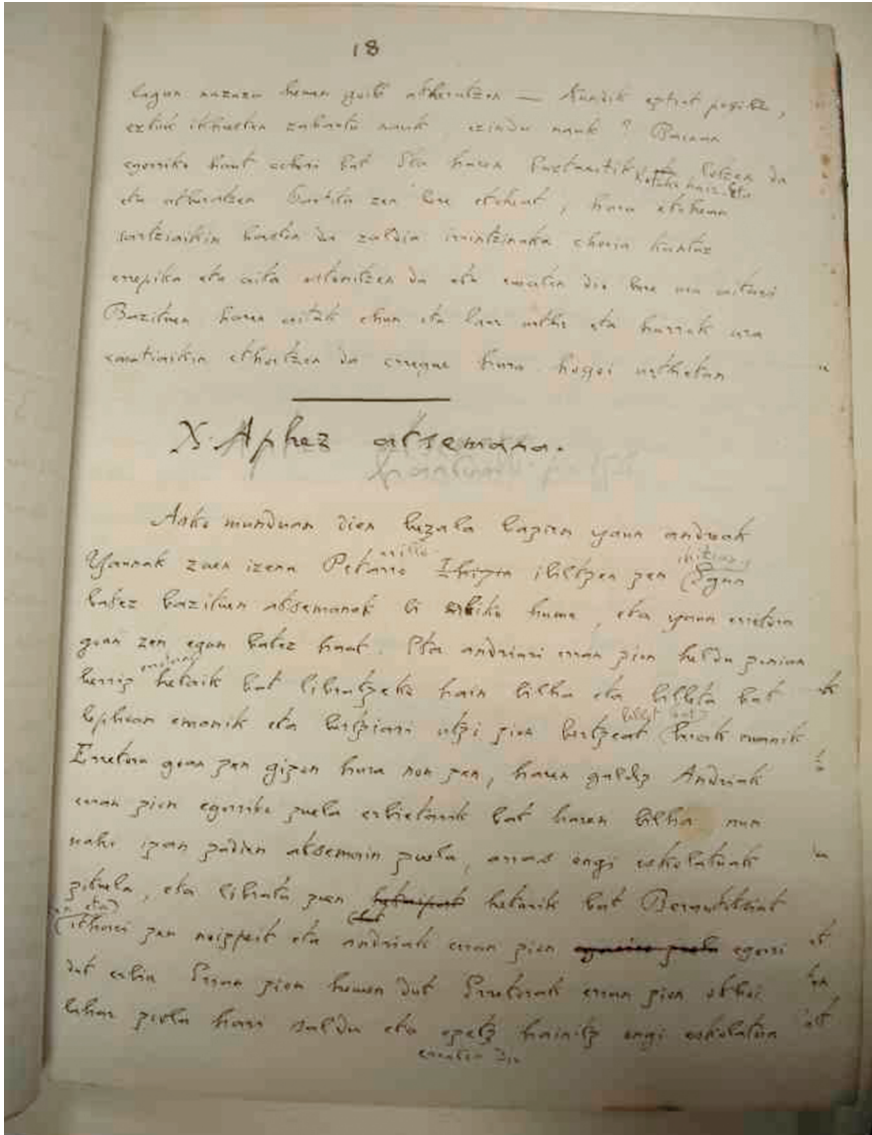 18
lagun nazazu hemen goiti atheratzen — Nundik eztiot posible,
eztuk ikhusten zahartu nauk, ezindu nauk? Bainan
egorriko haut acheri bat Eta haren buztanetik lotzen da
lotuko haiz. Eta
eta atheratzen Partitu zen bere etcherat, hara etcheran
sartziaikin hasten da zaldia irrintzinaka choria kantuz
errepika eta aita altonitzen da eta ematen dio bere ura aitari
Bazituen haren aitak ehun eta laur urthe eta harrek ura
ematiaikin ethortzen da erregue hura hogoi urthetan
X. Aphez atsemana.
Asko munduan dien bezala baziren yaun andreak
Yaunak zuen izena Petarro ibiltzen zen Egun
batez bazituen atsemanak bi erbiko hume, eta yaun erretora
goan zen egun batez harat. Eta andriari erran zion heldu zenian
hetaik bat libratzeko hain bilha eta billeta bat
lephoan emanik eta bertziari utzi zion bertzeat berak emanik
billet bat
Erretora goan zen gizon hura non zen, haren galdez Andriak
erran zion egorriko zuela erbietarik bat haren bilha nun
nahi izan zadien atsemain zuela, arras ongi eskolatuak
zituela, eta libratu zuen hetarik bat
ethorri zen noizpeit eta andriak erran zion egorri
dut erbia Erran zion hemen dut Erretorak erran zion othoi
behar ziola hari saldu eta ezetz hainitz ongi eskolatua
ematen dio